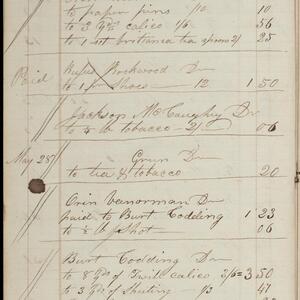 to paper pins 1/0 10
to 3 Yds calico 1/6 56
to 1 set britania tea spoons 2/ 25
Paid Rufus Rockwood Dr
to 1 pr Shoes 12 1 50
Jackson McCaughy Dr
to lb tobacco 2/ 06
May 25 Dr
to tea & tobacco 20
Orin Vanorman Dr
paid to Burt Codding 1 23
to lb Shot 06
Burt Codding Dr
to 8 Yds of calico 3/6 3 50
to 3 Yds of Shirting 1/3 47